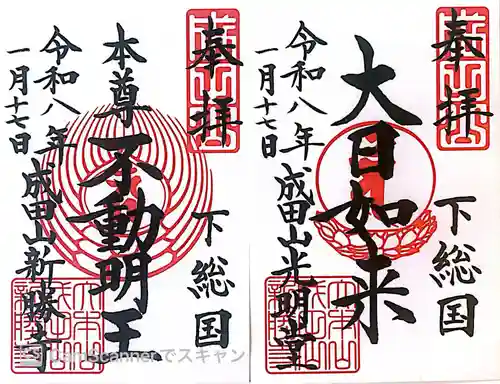 奉拝
下総国
本尊 不動明王
令和八年
一月十七日
成田山新勝寺
奉拝
下総国
大日如来
令和八年
一月十七日
成田山光明堂
CamScannerでスキャン